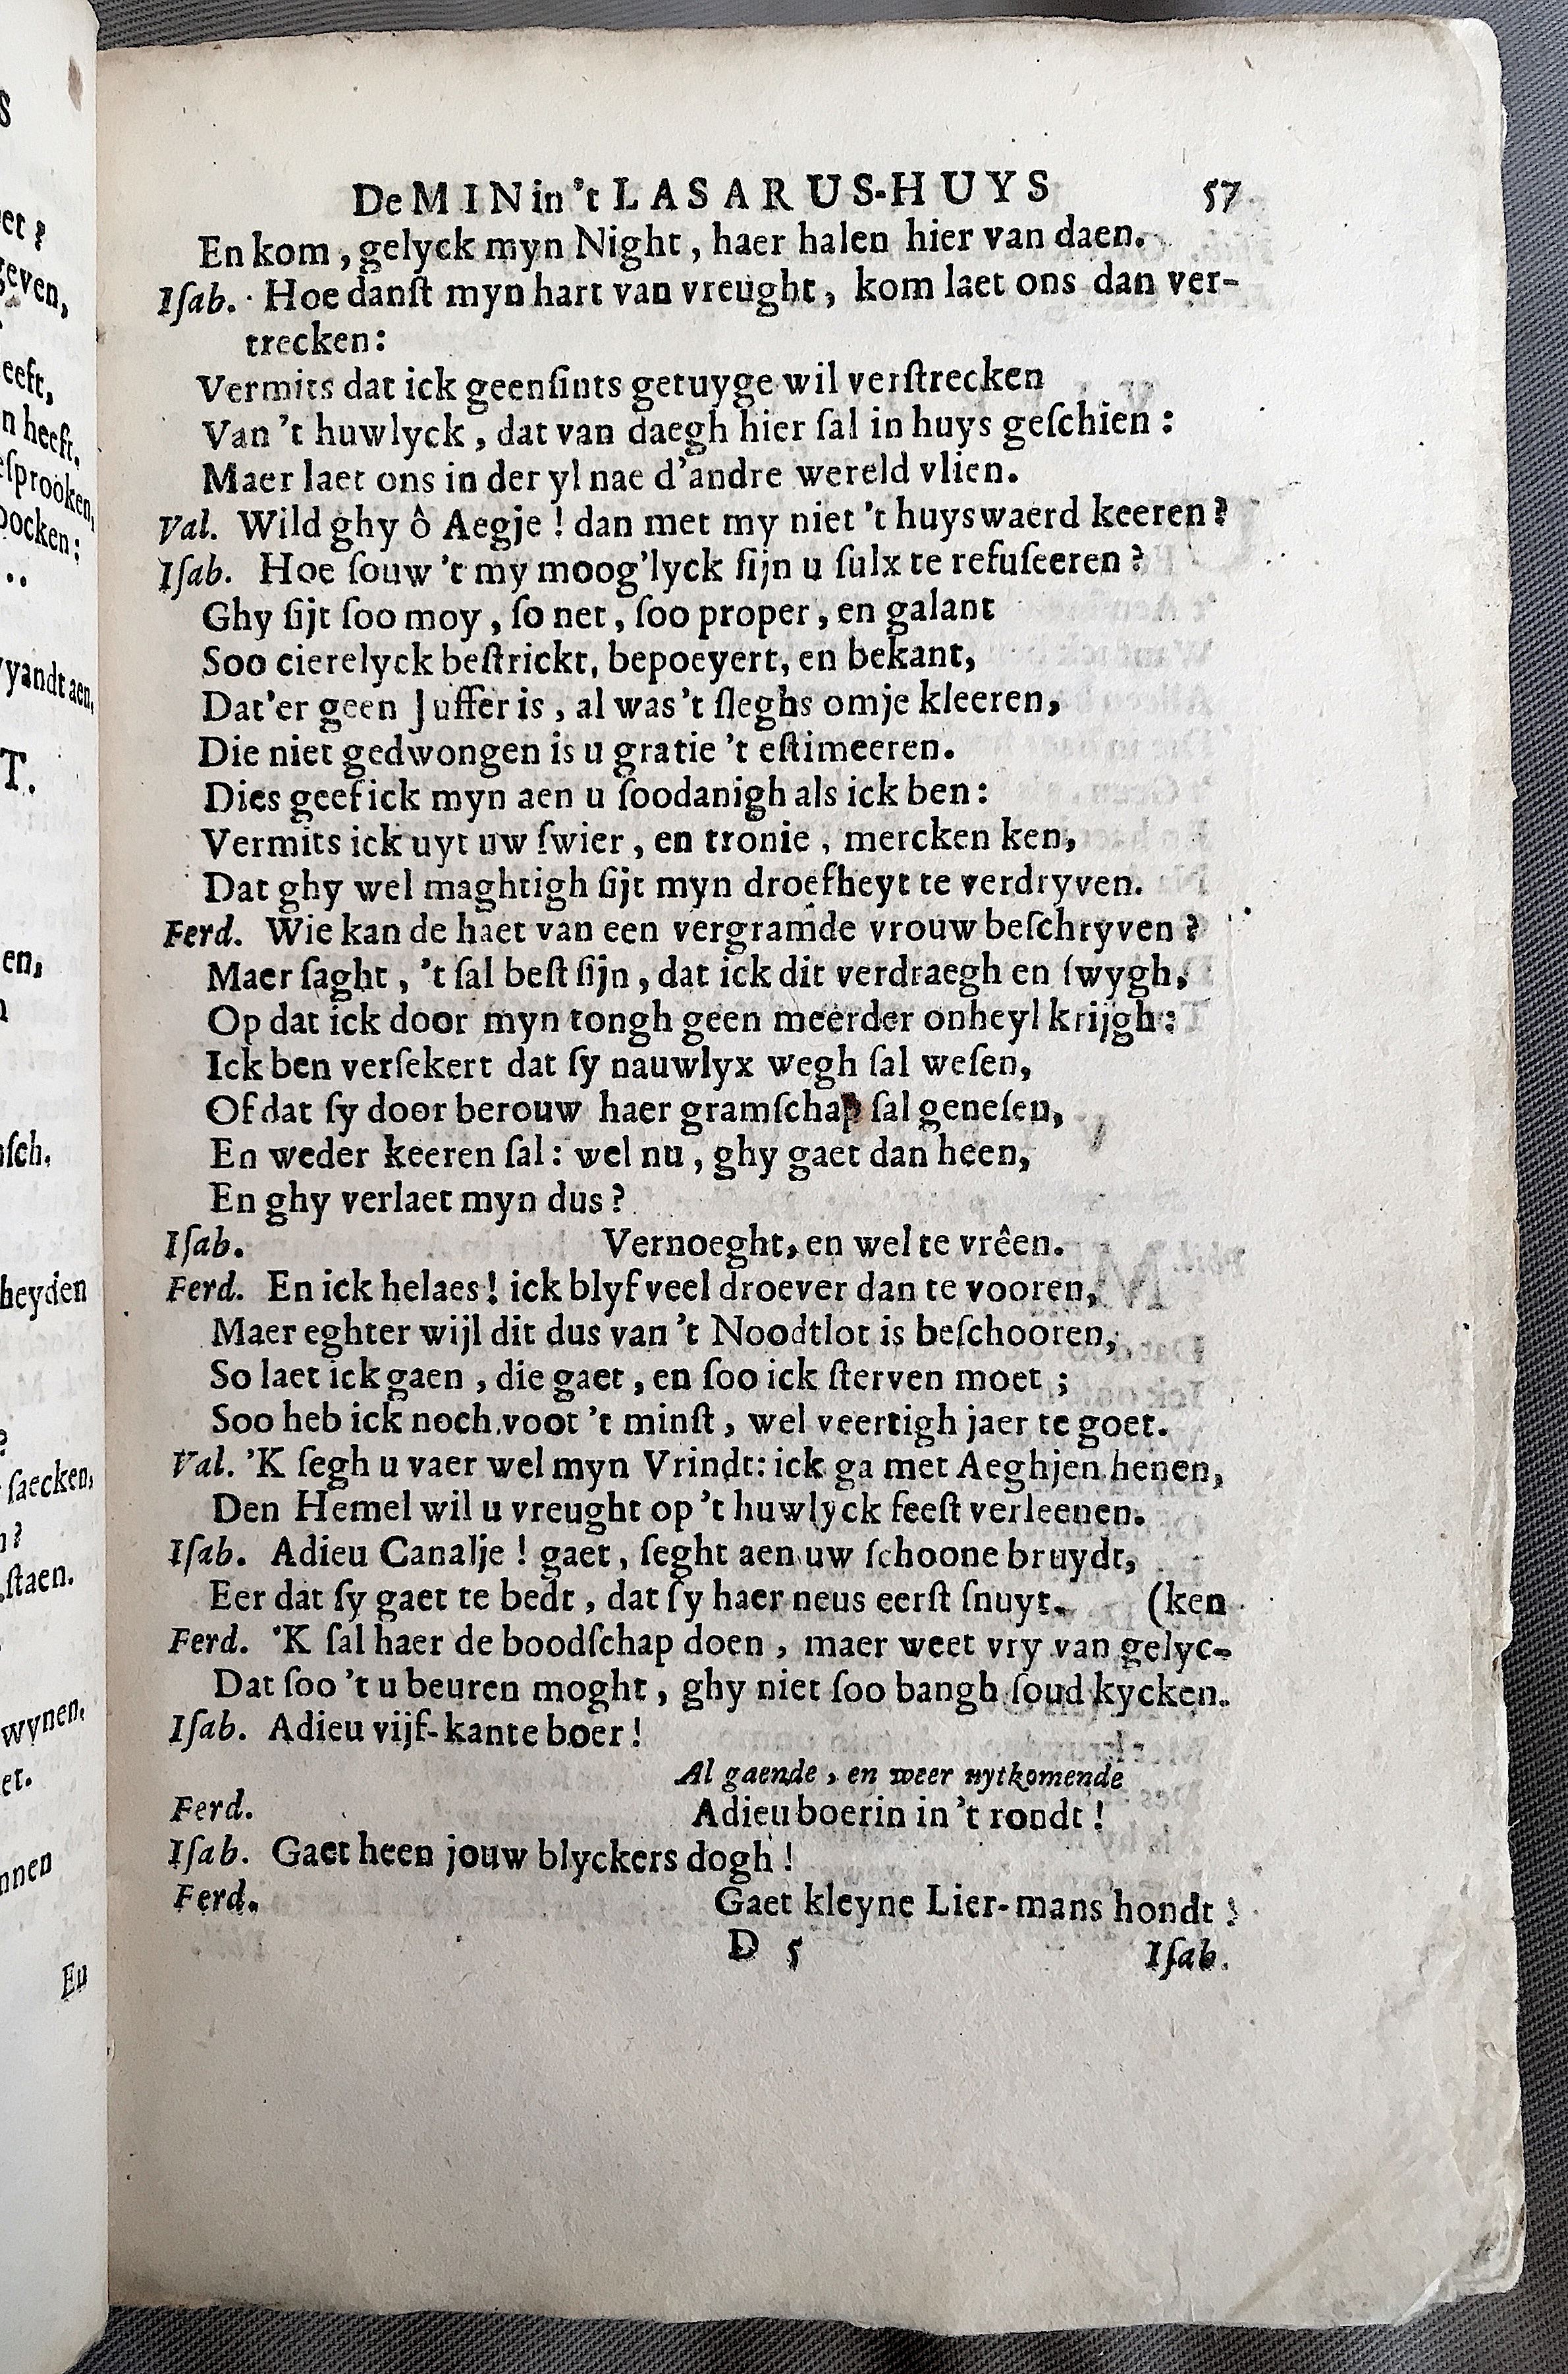 De MIN in 't LASARUS-HUYS 57
En kom, gelyck myn Night, haer halen hier van daen.
Iſab. Hoe danſt myn hart van vreught, kom laet ons dan ver-
trecken:
Vermits dat ick geenſints getuyge wil verſtrecken
Van 't huwlyck, dat van daegh hier ſal in huys geſchien:
Maer laet ons in der yl nae d'andre wereld vlien.
Val. Wild ghy ô Aegje! dan met my niet 't huyswaerd keeren?
Iſab. Hoe ſouw 't my moog'lyck ſijn u ſulx te refuſeeren?
Ghy ſijt ſoo moy, ſo net, ſoo proper, en galant
Soo cierelyck beſtrickt, bepoeyert, en bekant,
Dat'er geen Juffer is, al was't ſleghs om je kleeren,
Die niet gedwongen is u gratie 't eſtimeeren.
Dies geef ick myn aen u ſoodanigh als ick ben:
Vermits ick uyt uw ſwier, en tronie, mercken ken,
Dat ghy wel maghtigh ſijt myn droefheyt te verdryven.
Ferd. Wie kan de haet van een vergramde vrouw beſchryven?
Maer ſaght, 't ſal beſt ſijn, dat ick dit verdraegh en ſwygh,
Op dat ick door myn tongh geen meerder onheyl krijgh:
Ick ben verſekert dat ſy nauwlyx wegh ſal weſen,
Of dat ſy door berouw haer gramſchap ſal geneſen,
En weder keeren ſal: wel nu, ghy gaet dan heen,
En ghy verlaet myn dus?
Iſab. Vernoeght, en wel te vrêen.
Ferd. En ick helaes! ick blyf veel droever dan te vooren,
Maer eghter wijl dit dus van 't Noodtlot is beſchooren,
So laet ick gaen, die gaet, en ſoo ick ſterven moet;
Soo heb ick noch voot 't minſt, wel veertigh jaer te goet.
Val. 'K ſegh u vaer wel myn Vrindt: ick ga met Aeghjen henen,
Den Hemel wil u vreught op 't huwlyck feeſt verleenen.
Iſab. Adieu Canalje! gaet, ſeght aen uw ſchoone bruydt,
Eer dat ſy gaet te bedt, dat ſy haer neus eerſt ſnuyt. (ken
Ferd. 'K ſal haer de boodſchap doen, maer weet vry van gelyc-
Dat ſoo 't u beuren moght, ghy niet ſoo bangh ſoud kycken.
Iſab. Adieu vijf-kante boer!
Al gaende, en weer uytkomende
Ferd. Adieu boerin in 't rondt!
Iſab. Gaet heen jouw blyckers dogh!
Ferd. Gaet kleyne Lier-mans hondt!
D 5 Iſab.